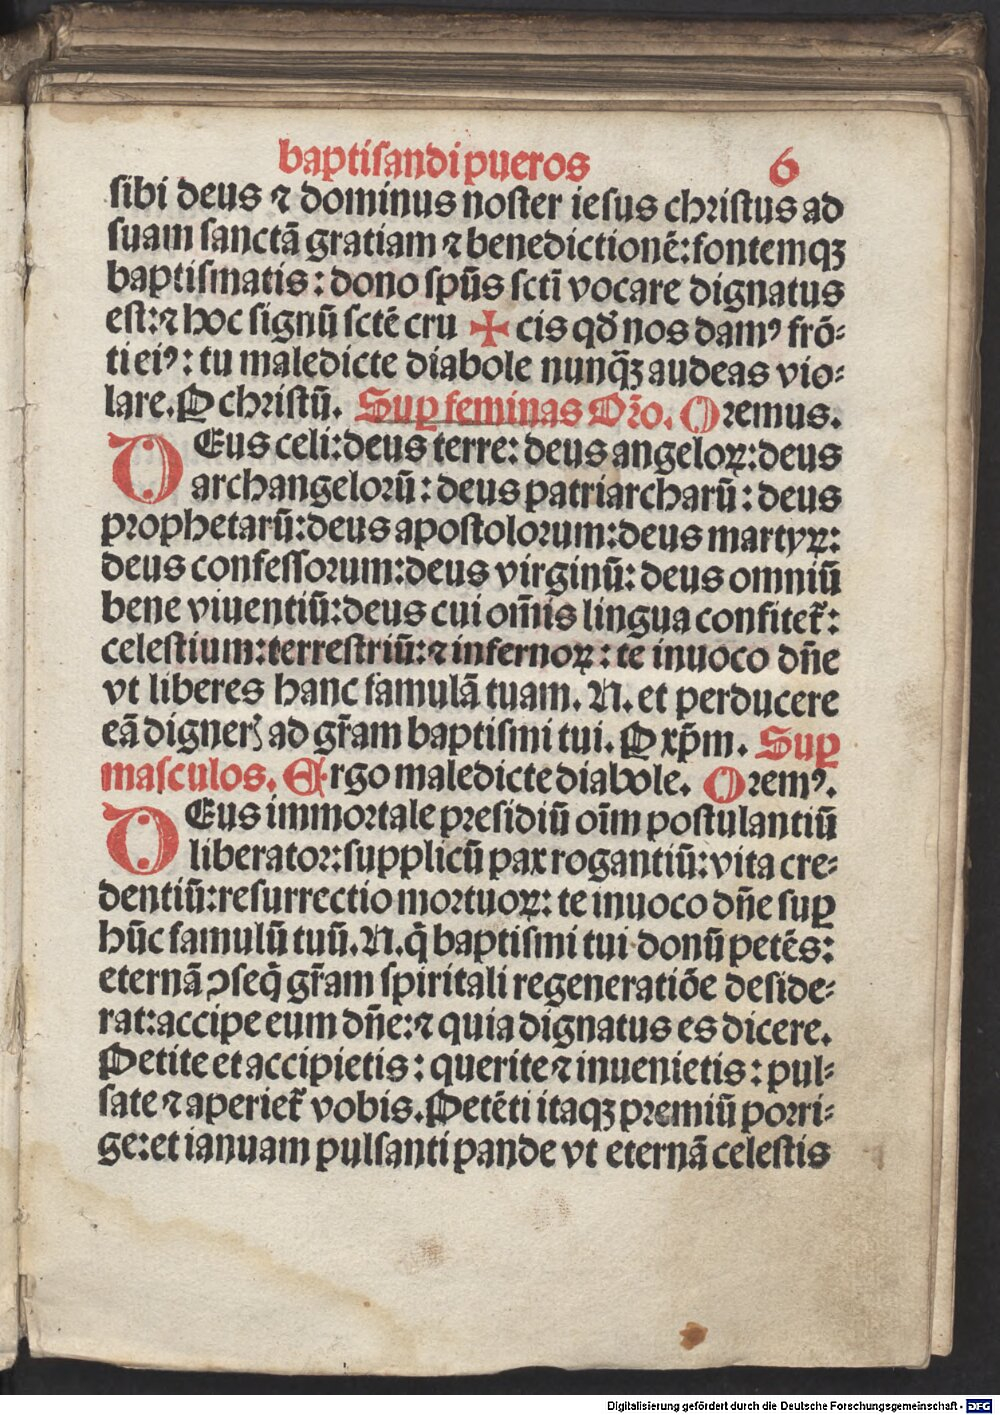 baptisandi pueros 6
sibi deus ⁊ dominus noster iesus christus ad
suam sanctā gratiam ⁊ benedictionē: fontemqꝫ
baptismatis: dono spūs sctī vocare dignatus
est: ⁊ hoc signū sctē cru ✠ cis qđ nos damꝰ frō-
ti eiꝰ: tu maledicte diabole nunq̄ꝫ audeas vio-
lare. P christū. Suꝑ feminas Oro. Oremus.
DEus celi: deus terre: deus angeloꝝ: deus
archangelorū: deus patriarcharū: deus
prophetarū: deus apostolorum: deus martyꝝ:
deus confessorum: deus virginū: deus omniū
bene viuentiū: deus cui om̄is lingua confitet̄:
celestium: terrestriū: ⁊ infernoꝝ: te inuoco dn̄e
vt liberes hanc famulā tuam. N. et perducere
eā digneris ad gr̄am baptismi tui. P xp̄m. Suꝑ
masculos. Ergo maledicte diabole. Oremꝰ.
DEus immortale presidiū oīm postulantiū
liberator: supplicū pax rogantiū: vita cre-
dentiū: resurrectio mortuoꝝ: te inuoco dn̄e suꝑ
hūc famulū tuū. N. q̄ baptismi tui donū petēs:
eternā ↄseq̄ gr̄am spiritali regeneratiōe deside-
rat: accipe eum dn̄e: ⁊ quia dignatus es dicere.
Petite et accipietis: querite ⁊ inuenietis: pul-
sate ⁊ aperiet̄ vobis. Petēti itaqꝫ premiū porri-
ge: et ianuam pulsanti pande vt eternā celestis
Digitalisierung gefördert durch die Deutsche Forschungsgemeinschaft - DFG